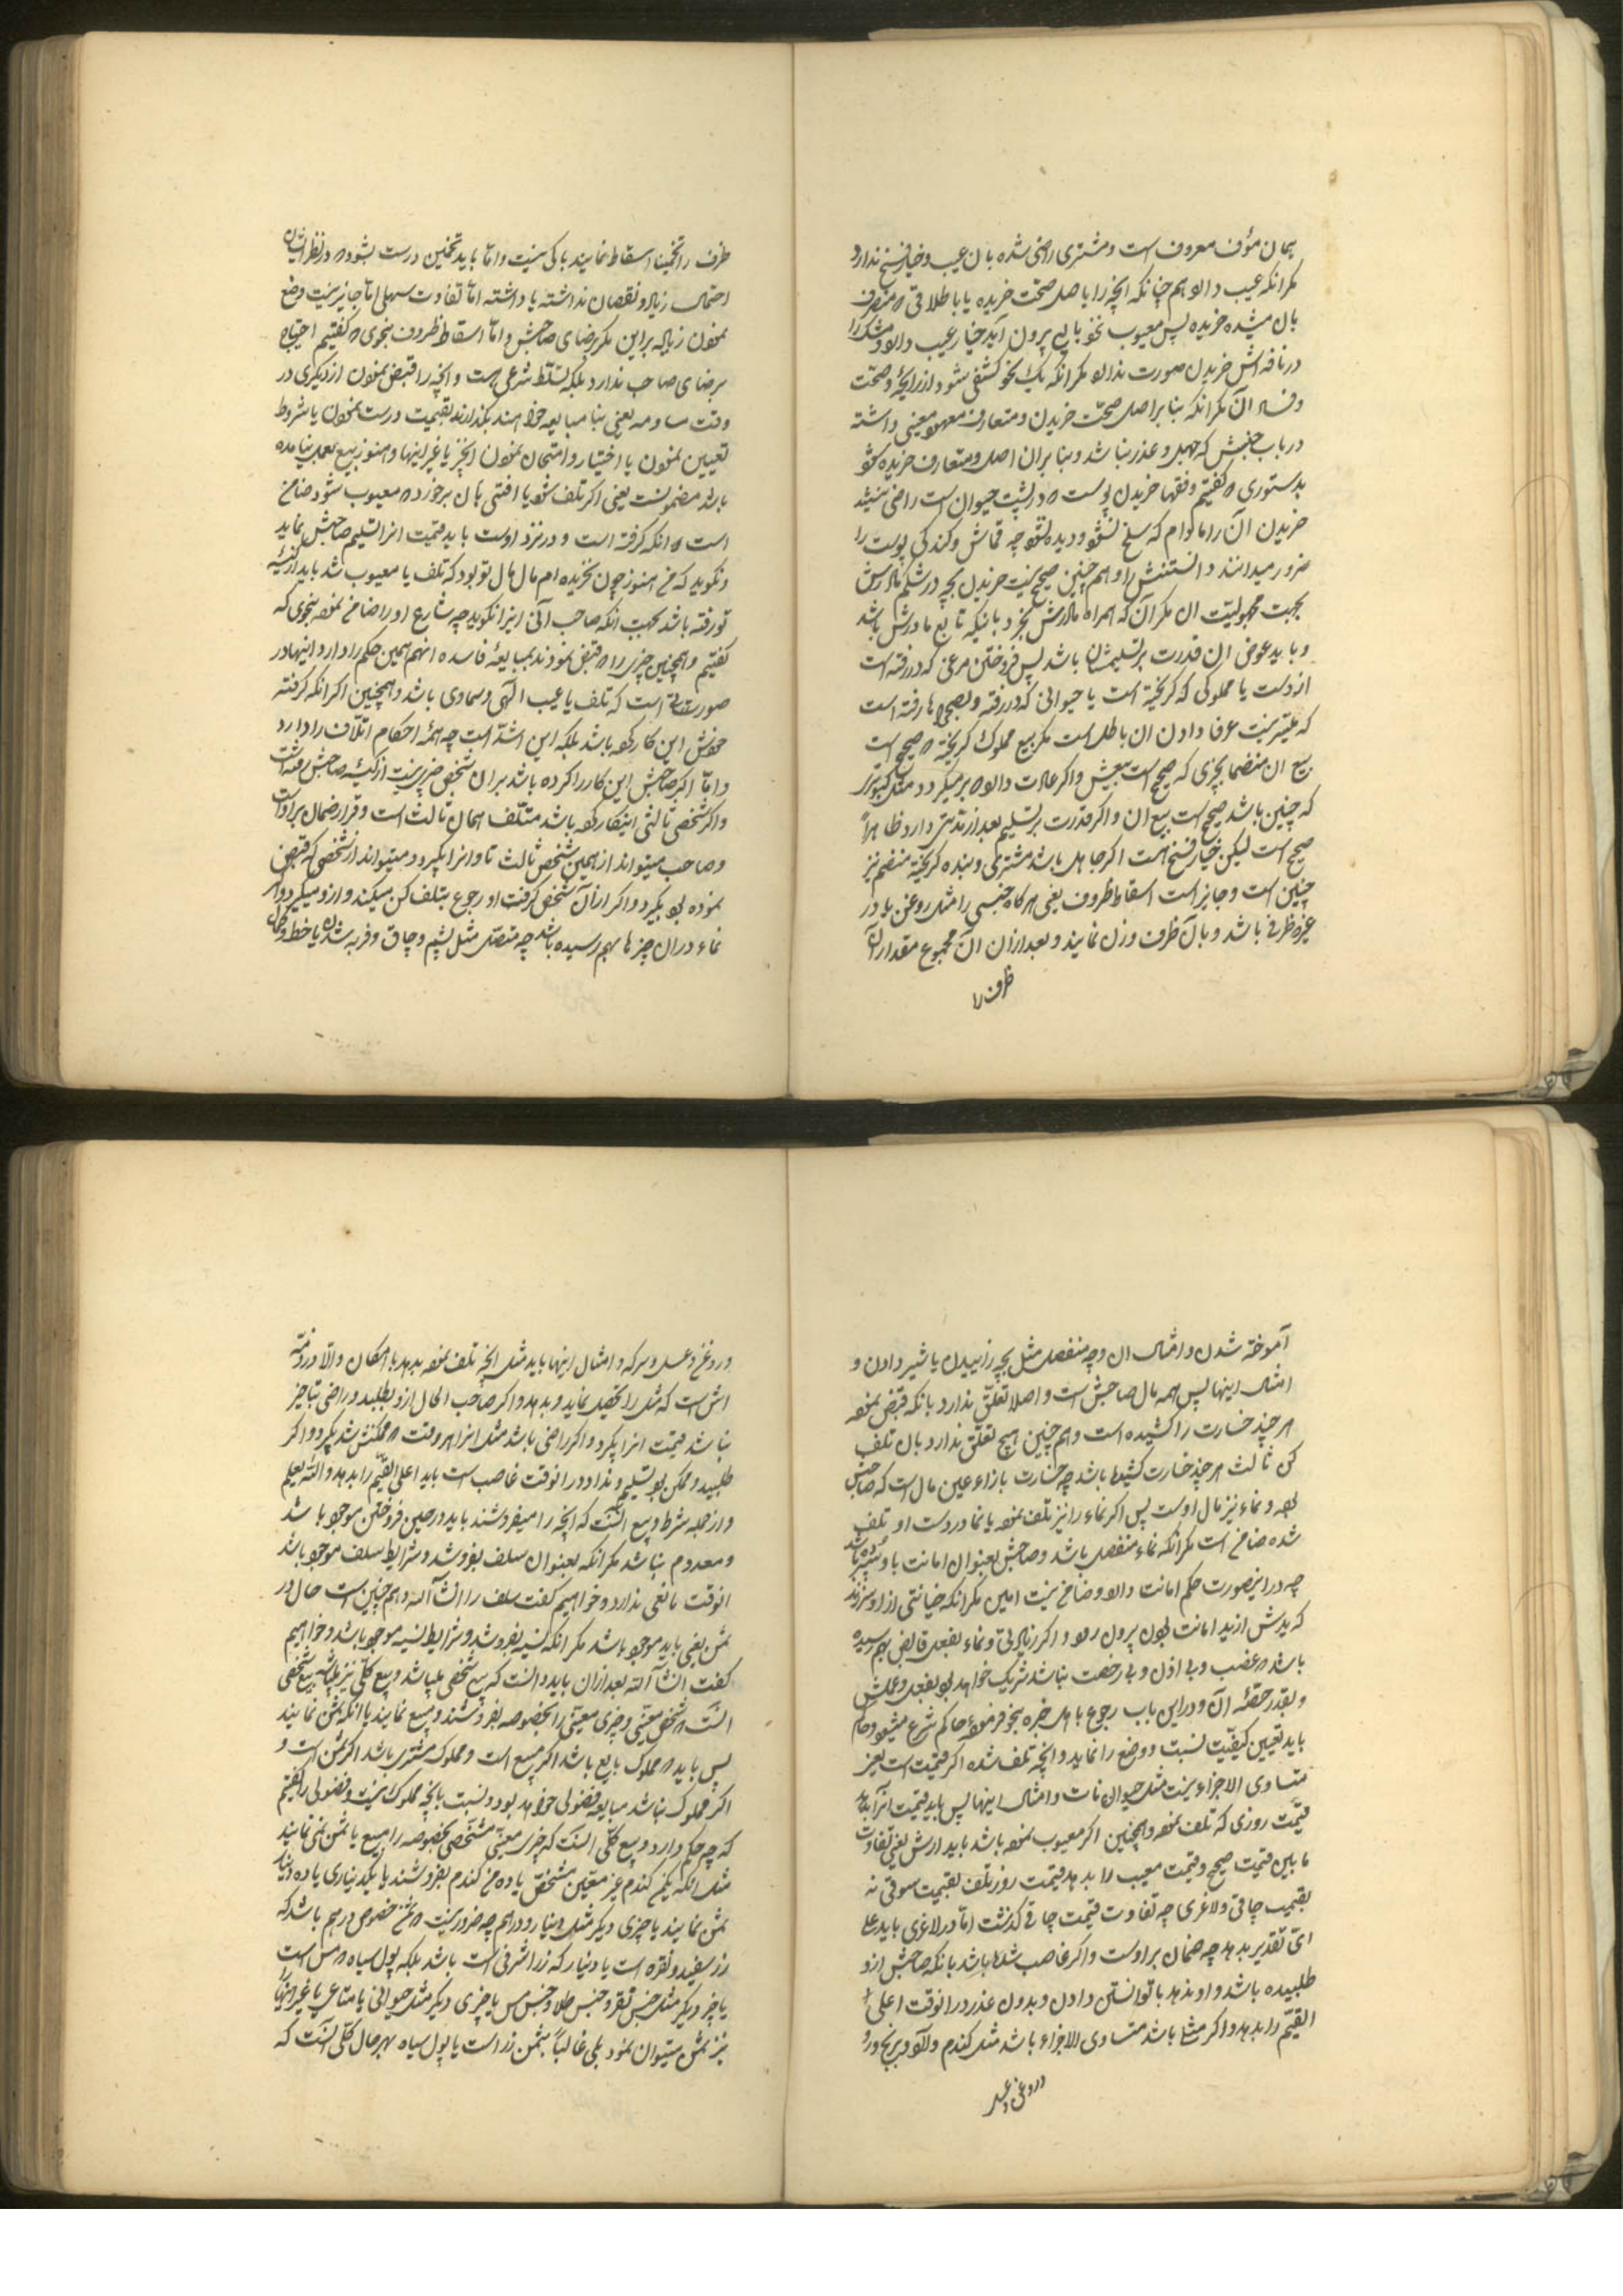 همان مؤف معروف است و مشتری راضی شده بان عیب و خیار فسخ ندارد
مکر انکه عیب دالو هم چنانکه انچه را باصل صحّت خریده یا باطلاقی که منصرف
بان میشده خریده پس معیوب پرون آید خیار عیب دالو و مشک را
در نافه اش خریدن صورت ندالو مکر انکه یک نحو کشفی بشود از رایحهٔ و صحّت
و فساد آن مکر انکه بنا بر اصل صحّت خریدن و متعارف معهود معینی داشته
در باب جنبش که جهل و غرر نباشد و بنا بران اصل و متعارف خریده شود
بدستوری که کفتیم و فقها خریدن پوست که در پشت حیوان است راضی نیستند
خریدن آن را مادام که سلخ نشود و دیده نشود چه قماش و کندکی پوست را
ضرور میدانند دانستنش را و هم چنین صحیح نیست خریدن بچه در شکم مادرش
بجهت مجهولیّت ان مکر آن که همراه مادرش بخرد باینکه تابع مادرش باشد
و باید عوض ان قدرت بر تسلیمشان باشد پس فروختن مرغی که در رفته است
از دست یا مملوکی که کریخته است یا حیوانی که در رفته و بصحراها رفته است
که میسّر نیست عرفا دادن ان باطل است مکر بیع مملوک کریخته که صحیح است
بیع ان منضما بچیزی که صحیح است بیعش و اکر عادت دالو که برمیکردد مثل کبوتر
که چنین باشد صحیح است بیع ان و اکر قدرت بر تسلیم بعد از مدّتی دارد ظاهراً
صحیح است لیکن خیار فسخ هست اکر جاهل باشد مشتری و بنده کریخته منضم نیز
چنین است و جایز است اسقاط ظروف یعنی هر کاه جنسی را مثل روغن یا در
غیره ظرفی باشد و با آن ظرف وزن نمایند و بعد از ان از آن مجموع مقدار آن
ظرف را
ظرف را تخمینا اسقاط نمایند باکی نیست و امّا باید تخمین درست بشود که در نظر ایشان
احتمال زیاد و نقصان نداشته یا داشته امّا تفاوت سهلی امّا جایز نیست وضع
نمودن زیاده بر این مکر برضای صاحبش و امّا اسقاط ظروف بنحوی که کفتیم احتیاج
برضای صاحب ندارد بلکه تسلّط شرعی هست و انچه را قبض نمودن از دیکری در
وقت مساومه یعنی بنا مبایعه خواهند بکذارند بقیمت درست نمودن یا شروط
تعیین نمودن یا اختیار و امتحان نمودن انچیز یا غیر اینها و هنوز بیع بعمل نیامده
باشد مضمونست یعنی اکر تلف شود یا افتی بان برخورد که معیوب شود ضامن
است انکه کرفته است و در نزد اوست باید قیمت انرا تسلیم صاحبش نماید
و نکوید که من هنوز چون نخریده ام مال مال تو بود که تلف یا معیوب شد باید از کیسهٔ
تو رفته باشد بجهت انکه صاحب آنی اینرا نکوید چه شارع او را ضامن نموده بنحوی که
کفتیم و همچنین چیزی را که قبض نمودند بمبایعهٔ فاسده انهم همین حکم را دارد و اینها در
صورتی است که تلف یا عیب الٓهی و سماوی باشد و همچنین اکر انکه کرفته
خودش این کار کرده باشد بلکه این اشدّ است چه همهٔ احکام اتلاف را دارد
و امّا اکر صاحبش این کار را کرده باشد بر ان شخص چیزی نیست از کیسهٔ صاحبش رفته است
و اکر شخصی ثالثی اینکار کرده باشد متلف همان ثالث است و قرار ضمان بر اوست
و صاحب میتواند از همین شخص ثالث تاوانرا بکیرد و میتواند از شخصی که قبض
نموده بود بکیرد و اکر از آن شخص کرفت او رجوع بتلف کن میکند و از او میکیرد و اکر
نماء در ان چیزها بهم رسیده باشد چه متصل مثل پشم و چاق و فربه شدن یا خط و کمال
آموخته شدن و امثال ان و چه منفصل مثل بچه زاییدن یا شیر دادن و
امثال اینها پس همه مال صاحبش است و اصلا تعلّق ندارد بانکه قبض نموده
هر چند خسارت را کشیده است و هم چنین هیچ تعلّق ندارد بان تلف
کن ثالث هر چند خسارت کشیده باشد چه خسارت بازاء عین مال است که صاحبش
بوده و نماء نیز مال اوست پس اکر نماء را نیز تلف نموده یا نما در دست او تلف
شده ضامن است مکر انکه نماء منفصل باشد و صاحبش بعنوان امانت باو سپرده باشد
چه در اینصورت حکم امانت دالو و ضامن نیست امین مکر انکه خیانتی از او سرزند
که یدش از ید امانت بودن پرون رود و اکر زیادتی و نماء بفعل قابض بهم رسیده
باشد که غصب و بی اذن و بی رخصت نباشد شریک خواهد بود بفعل و عملش
و بقدر حصّهٔ آن و در این باب رجوع باهل خبره بنحو فرموده حاکم شرع میشود و حاکم
باید تعیین کیفیّت نسبت و وضع را نماید و انچه تلف شده اکر قیمتی است یعنی
متساوی الاجزاء نیست مثل حیوانات و امثال اینها پس باید قیمت انرا بدهد
قیمت روزی که تلف نموده و همچنین اکر معیوب نموده باشد باید ارش یعنی تفاوت
ما بین قیمت صحیح و قیمت معیب را بدهد قیمت روز تلف بقیمت سوقی نه
بقیمت چاقی و لاغری چه تفاوت قیمت چاقی کذشت امّا در لاغری باید علی
ایّ تقدیر بدهد چه ضمان بر اوست و اکر غاصب شده باشد بانکه صاحبش از او
طلبیده باشد و او ندهد با توانستن دادن و بدون عذر در انوقت اعلی
القیّم را بدهد و اکر مثلی باشد متساوی الاجزاء باشد مثل کندم و الو و برنج و
و روغن و عسل
و روغن و عسل و سرکه و امثال اینها باید مثل انچه تلف نموده بدهد با امکان و الّا در ذمّه
اش است که مثل را تحصیل نماید و بدهد و اکر صاحب الحال از او بطلبد و راضی بتاخیر
نباشد قیمت انرا بکیرد و اکر راضی باشد مثل انرا هر وقت که ممکنش شد بکیرد و اکر
طلبید و ممکن بود تسلیم و نداد در انوقت غاصب است باید اعلی القیّم را بدهد و اللّه یعلم
و از جمله شرط بیع انست که انچه را میفروشند باید در حین فروختن موجود باشد
و معدوم نباشد مکر انکه بعنوان سلف بفروشد و شرایط سلف موجود باشد
انوقت مانعی ندارد و خواهیم کفت سلف را انشآ اللّه و هم چنین است حال در
ثمن یعنی باید موجود باشد مکر انکه نسیه بفروشد و شرایط نسیه موجود باشد و خواهیم
کفت انشآ اللّه بعد از ان باید دانست که بیع شخصی میباشد و بیع کلّی نیز میباشد بیع شخصی
انست که شخص معیّنی و چیزی معیّنی را بخصوصه بفروشند و مبیع نمایند یا انکه ثمن نمایند
پس باید که مملوک بایع باشد اکر مبیع است و مملوک مشتری باشد اکر ثمن است و
اکر مملوک نباشد مبایعه فضولی خواهد بود و نسبت بانچه مملوک نیست و فضولی را کفتیم
که چه حکم دارد و بیع کلّی انست که چیزی معیّنی مشخّصی بخصوصه را مبیع یا ثمن نمی نمایند
مثل انکه یکمن کندم غیر معیّن مشخّص یا ده من کندم بفروشند بیکدیناری یا ده دینار
ثمن نمایند یا چیزی دیکر مثل دینار و دراهم چه ضرور نیست که ثمن خصوص درهم باشد که
زر سفید و نقره است یا دینار که زر اشرفی است باشد بلکه پول سیاه که مس است
یا چیز دیکر مثل جنس نقره و جنس طلا و جنس مس یا چیزی دیکر مثل حیوانی یا متاعی یا غیر اینها را
نیز ثمن میتوان نمود بلی غالباً ثمن زر است یا پول سیاه بهر حال کلّی انست که